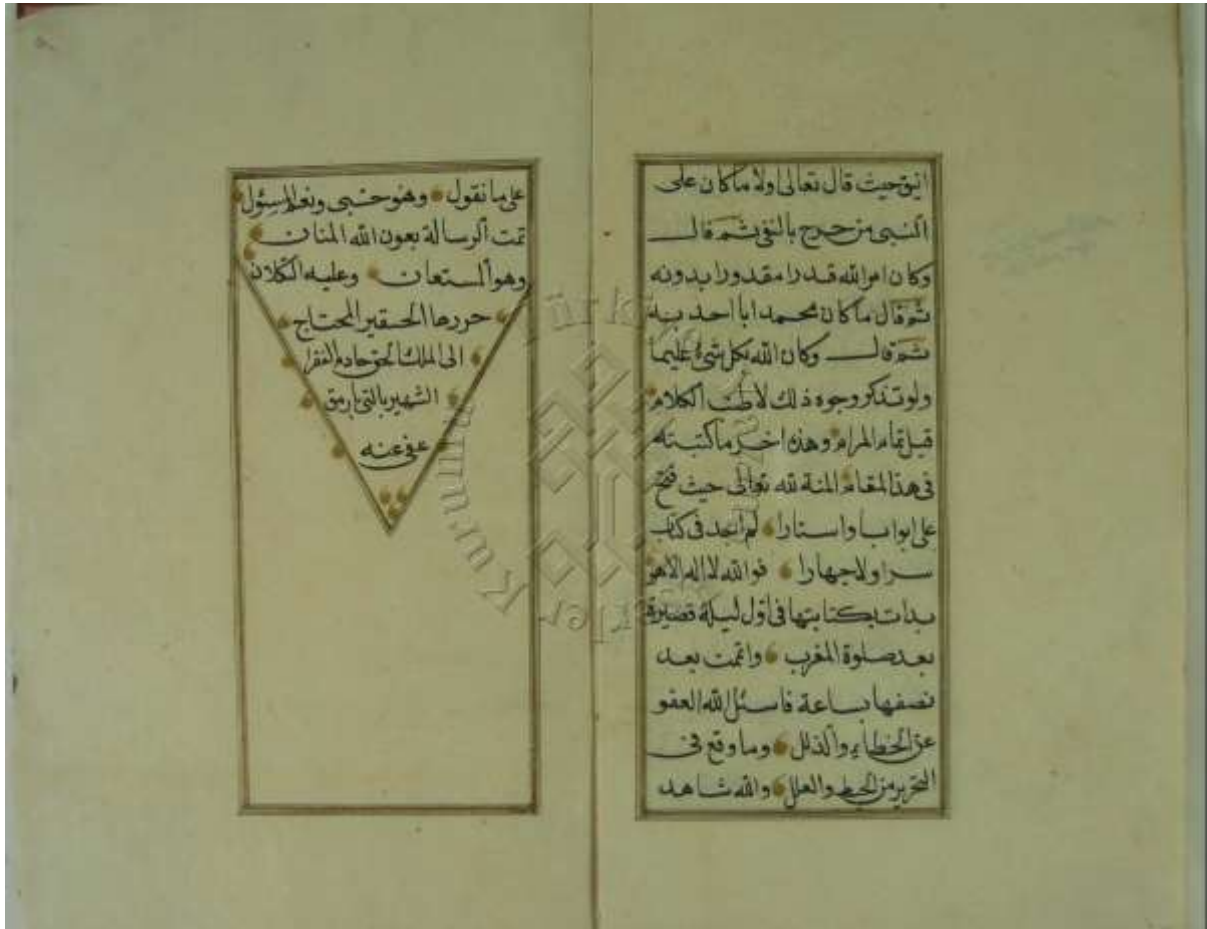 انيق حيث قال تعالى اولا ما كان على
النبى من حرج بالنفى ثم قال
وكان امر الله قدرا مقدورا بدونه
ثم قال ما كان محمد ابا احد به
ثم قال وكان الله بكل شئ عليما
ولو تذكر وجوه ذلك لاطنب الكلام
قبل تمام المرام وهذه اخر ما كتبته
فى هذا المقام المنة لله تعالى حيث فتح
على ابوابا واستارا لم اجد فى كتاب
سرا ولا جهارا فوالله لا اله الا هو
بدات بكتابتها فى اول ليلة قصيرة
بعد صلوة المغرب واتممت بعد
نصفها بساعة فاسئل الله العفو
عن الخطاء والذلل وما وقع فى
التحرير من الخبط والعلل والله شاهد
على ما نقول وهو حسبى ونعم المسئول
تمت الرسالة بعون الله المنان
وهو المستعان وعليه التكلان
حررها الحقير المحتاج
الى الملك الحق خادم الفقرا
الشهير بالتى پارمق
عفى عنه